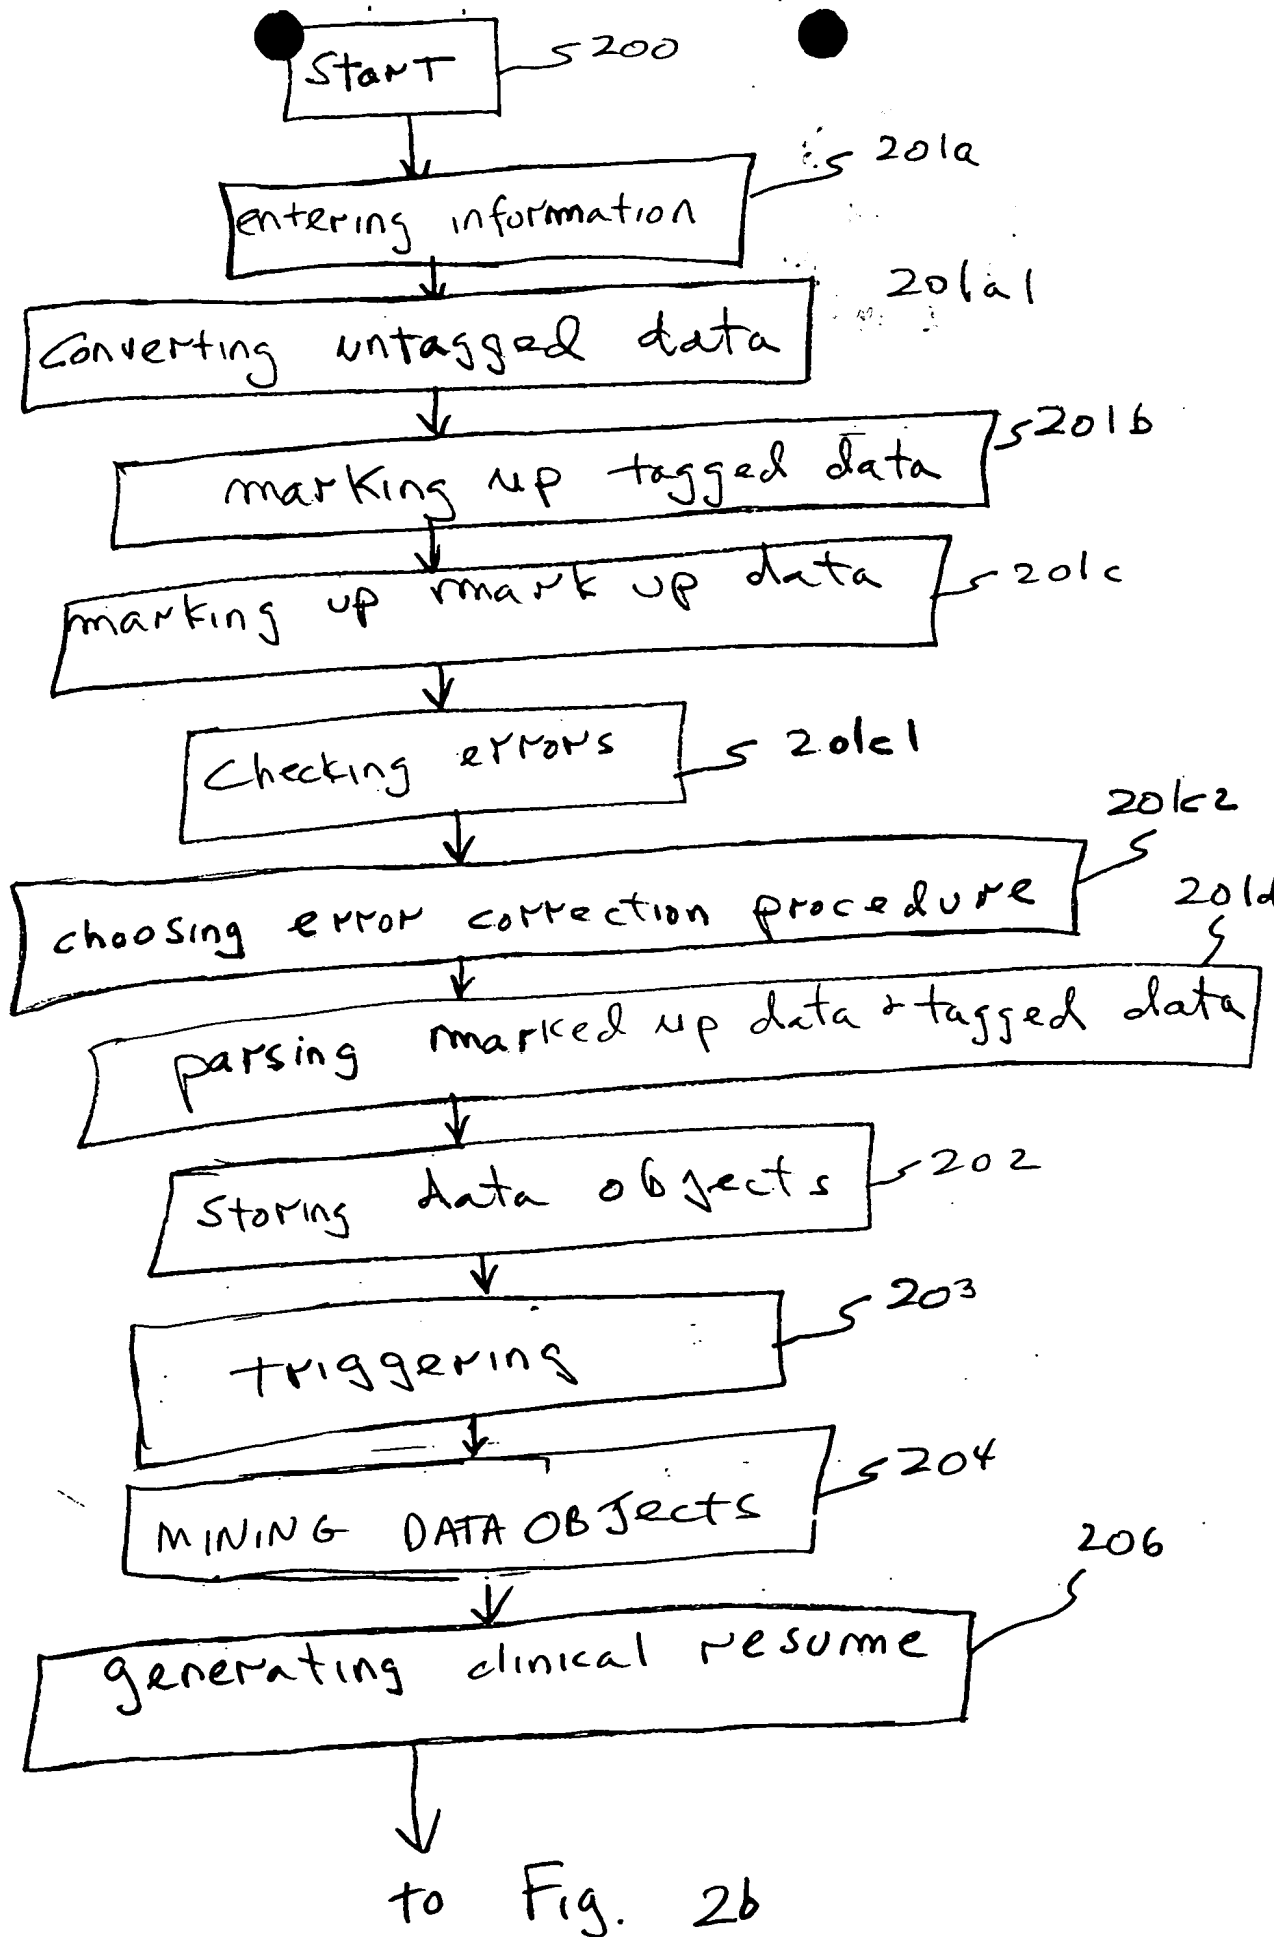 START 200
201a
entering information
201a1
Converting untagged data
201b
marking up tagged data
marking up mark up data 201c
Checking errors 201c1
201c2
choosing error correction procedure
201d
parsing marked up data & tagged data
Storing data objects 202
203
triggering
204
MINING DATA OBJects
206
generating clinical resume
to Fig. 2b